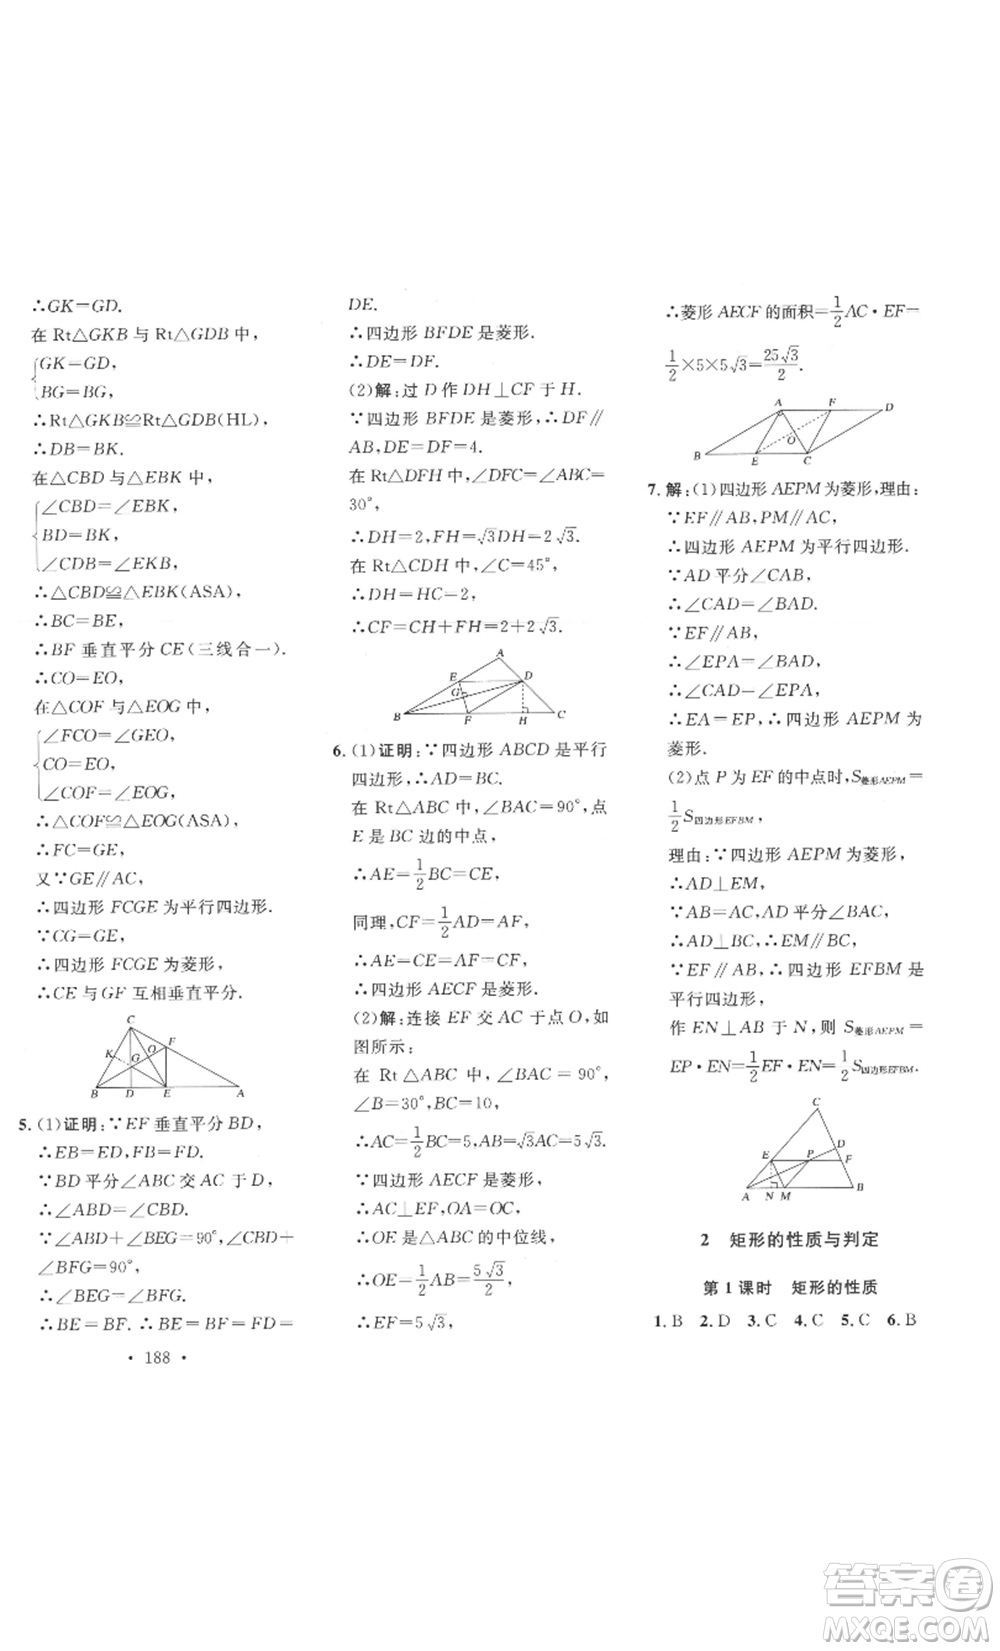 ∴GK=GD.
在 Rt△GKB 与 Rt△GDB 中,
GK=GD,
BG=BG,
∴Rt△GKB≌Rt△GDB(HL),
∴DB=BK.
在△CBD 与△EBK 中,
∠CBD=∠EBK,
BD=BK,
∠CDB=∠EKB,
∴△CBD≌△EBK(ASA),
∴BC=BE,
∴BF 垂直平分 CE(三线合一).
∴CO=EO,
在△COF 与△EOG 中,
∠FCO=∠GEO,
CO=EO,
∠COF=∠EOG,
∴△COF≌△EOG(ASA),
∴FC=GE,
又∵GE∥AC,
∴四边形 FCGE 为平行四边形.
∵CG=GE,
∴四边形 FCGE 为菱形,
∴CE 与 GF 互相垂直平分.
C
K
O
F
G
B D E A
5. (1)证明:∵EF 垂直平分 BD,
∴EB=ED,FB=FD.
∵BD 平分∠ABC 交 AC 于 D,
∴∠ABD=∠CBD.
∵∠ABD+∠BEG=90°,∠CBD+
∠BFG=90°,
∴∠BEG=∠BFG,
∴BE=BF. ∴BE=BF=FD=
· 188 ·
DE.
∴四边形 BFDE 是菱形.
∴DE=DF.
(2)解:过 D 作 DH⊥CF 于 H.
∵四边形 BFDE 是菱形,∴DF∥
AB,DE=DF=4.
在 Rt△DFH 中,∠DFC=∠ABC=
30°,
∴DH=2,FH=√3DH=2√3.
在 Rt△CDH 中,∠C=45°,
∴DH=HC=2,
∴CF=CH+FH=2+2√3.
A
E D
G
B F H C
6. (1)证明:∵四边形 ABCD 是平行
四边形,∴AD=BC.
在 Rt△ABC 中,∠BAC=90°,点
E 是 BC 边的中点,
∴AE=1/2BC=CE,
同理,CF=1/2AD=AF,
∴AE=CE=AF=CF,
∴四边形 AECF 是菱形.
(2)解:连接 EF 交 AC 于点 O,如
图所示:
在 Rt△ABC 中,∠BAC=90°,
∠B=30°,BC=10,
∴AC=1/2BC=5,AB=√3AC=5√3.
∵四边形 AECF 是菱形,
∴AC⊥EF,OA=OC,
∴OE 是△ABC 的中位线,
∴OE=1/2AB=5√3/2,
∴EF=5√3,
∴菱形 AECF 的面积=1/2AC·EF=
1/2×5×5√3=25√3/2.
A F D
O
B E C
7. 解:(1)四边形 AEPM 为菱形,理由:
∵EF∥AB,PM∥AC,
∴四边形 AEPM 为平行四边形.
∵AD 平分∠CAB,
∴∠CAD=∠BAD.
∵EF∥AB,
∴∠EPA=∠BAD,
∴∠CAD=∠EPA,
∴EA=EP,∴四边形 AEPM 为
菱形.
(2)点 P 为 EF 的中点时,S菱形AEPM=
1/2S四边形EFBM,
理由:∵四边形 AEPM 为菱形,
∴AD⊥EM,
∵AB=AC,AD 平分∠BAC,
∴AD⊥BC,∴EM∥BC,
∵EF∥AB,∴四边形 EFBM 是
平行四边形,
作 EN⊥AB 于 N,则 S菱形AEPM=
EP·EN=1/2EF·EN=1/2S四边形EFBM.
C
D
E P F
A N M B
2 矩形的性质与判定
第 1 课时 矩形的性质
1. B 2. D 3. C 4. C 5. C 6. B
答案卷
MXQE.COM